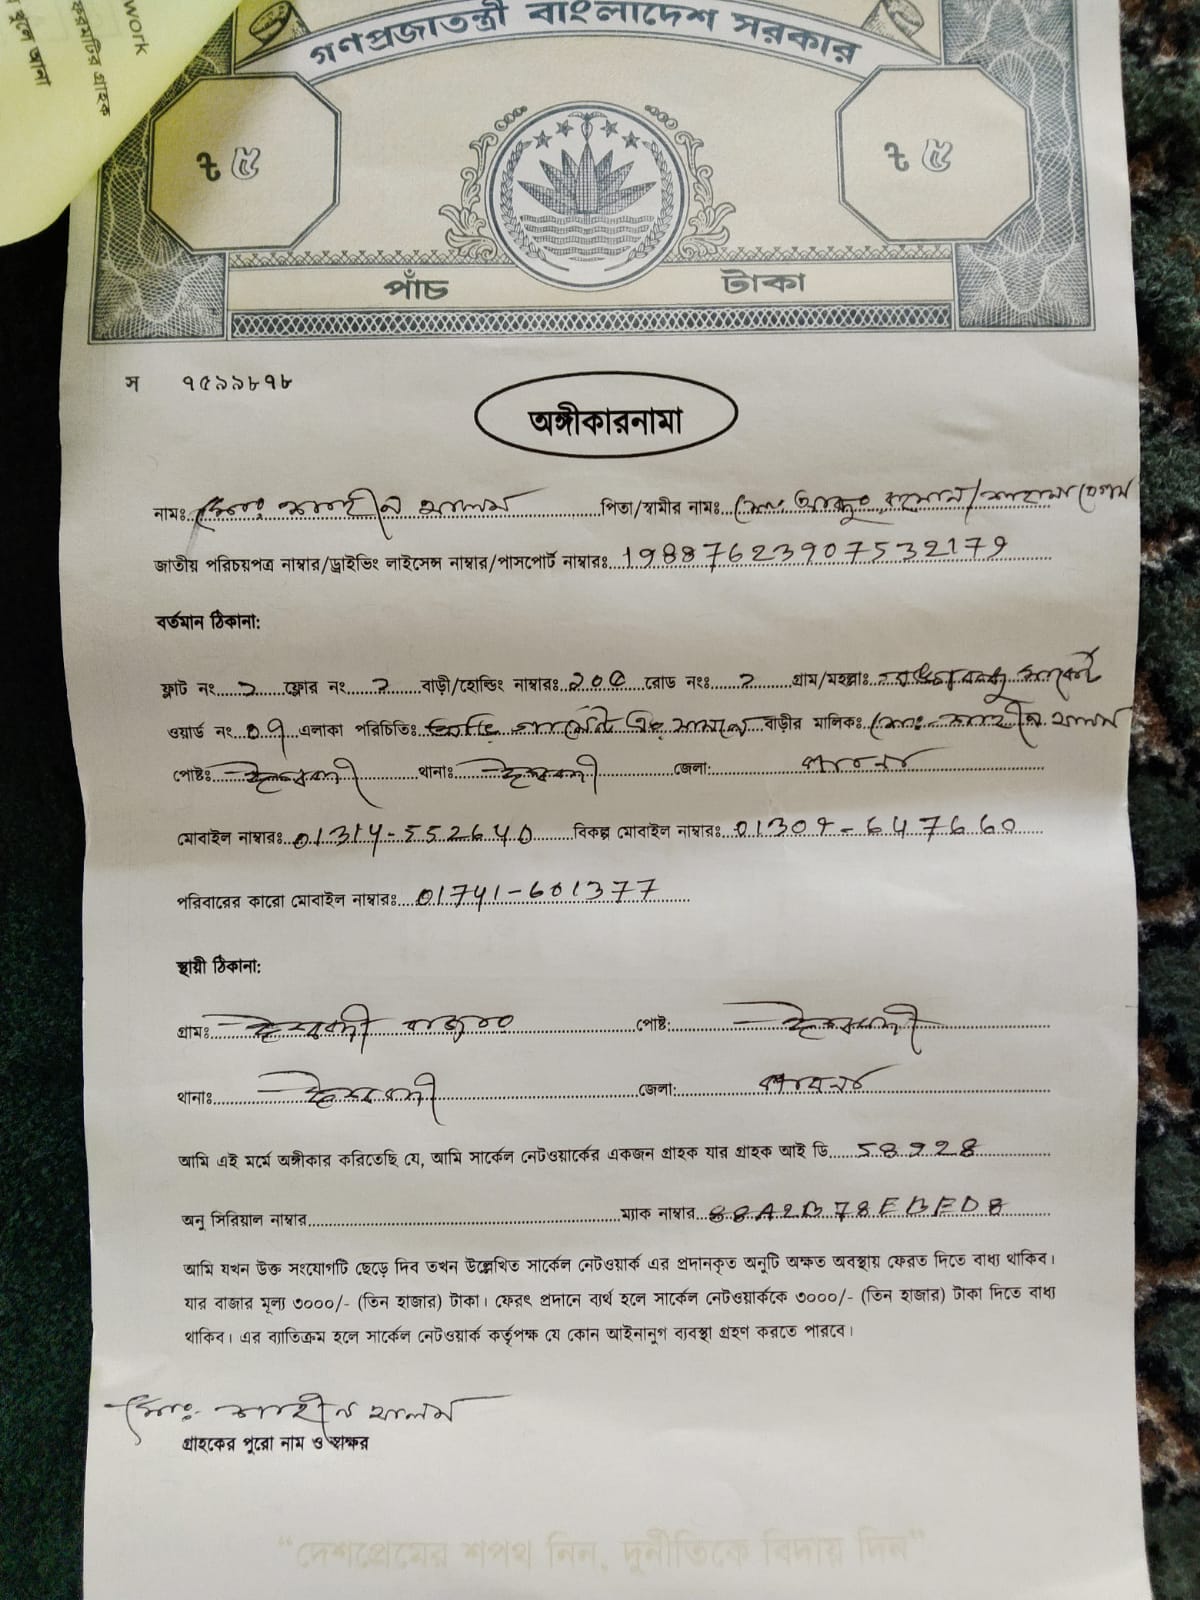 work
করমটির গ্রাহক
খুলে জানা
গণপ্রজাতন্ত্রী বাংলাদেশ সরকার
৳ ৫ ৳ ৫
পাঁচ টাকা
স ৭৫৯৯৮৭৮
অঙ্গীকারনামা
নামঃ মোঃ শাহীন আলম পিতা/স্বামীর নামঃ মোঃ রহমান/শাহানা বেগম
জাতীয় পরিচয়পত্র নাম্বার/ড্রাইভিং লাইসেন্স নাম্বার/পাসপোর্ট নাম্বারঃ 19887623907532179
বর্তমান ঠিকানা:
ফ্লাট নং ফ্লোর নং বাড়ী/হোল্ডিং নাম্বারঃ রোড নংঃ গ্রাম/মহল্লাঃ
ওয়ার্ড নং এলাকা পরিচিতিঃ বাড়ীর মালিকঃ মোঃ শাহীন আলম
পোষ্টঃ ঈশ্বরদী থানাঃ ঈশ্বরদী জেলা: পাবনা
মোবাইল নাম্বারঃ 01314-552640 বিকল্প মোবাইল নাম্বারঃ 01307-647660
পরিবারের কারো মোবাইল নাম্বারঃ 01741-601377
স্থায়ী ঠিকানা:
গ্রামঃ ঈশ্বরদী বাজার পোষ্ট: ঈশ্বরদী
থানাঃ ঈশ্বরদী জেলা: পাবনা
আমি এই মর্মে অঙ্গীকার করিতেছি যে, আমি সার্কেল নেটওয়ার্কের একজন গ্রাহক যার গ্রাহক আই ডি 58928
অনু সিরিয়াল নাম্বার ম্যাক নাম্বার 88A2B78EBFD8
আমি যখন উক্ত সংযোগটি ছেড়ে দিব তখন উল্লেখিত সার্কেল নেটওয়ার্ক এর প্রদানকৃত অনুটি অক্ষত অবস্থায় ফেরত দিতে বাধ্য থাকিব।
যার বাজার মূল্য ৩০০০/- (তিন হাজার) টাকা। ফেরৎ প্রদানে ব্যর্থ হলে সার্কেল নেটওয়ার্ককে ৩০০০/- (তিন হাজার) টাকা দিতে বাধ্য
থাকিব। এর ব্যাতিক্রম হলে সার্কেল নেটওয়ার্ক কর্তৃপক্ষ যে কোন আইনানুগ ব্যবস্থা গ্রহণ করতে পারবে।
মোঃ শাহীন আলম
গ্রাহকের পুরো নাম ও স্বাক্ষর
"দেশপ্রেমের শপথ নিন, দুর্নীতিকে বিদায় দিন"